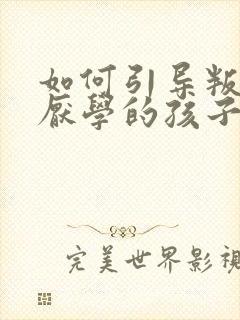 如何引导叛
厌学的孩子
完美世界影视